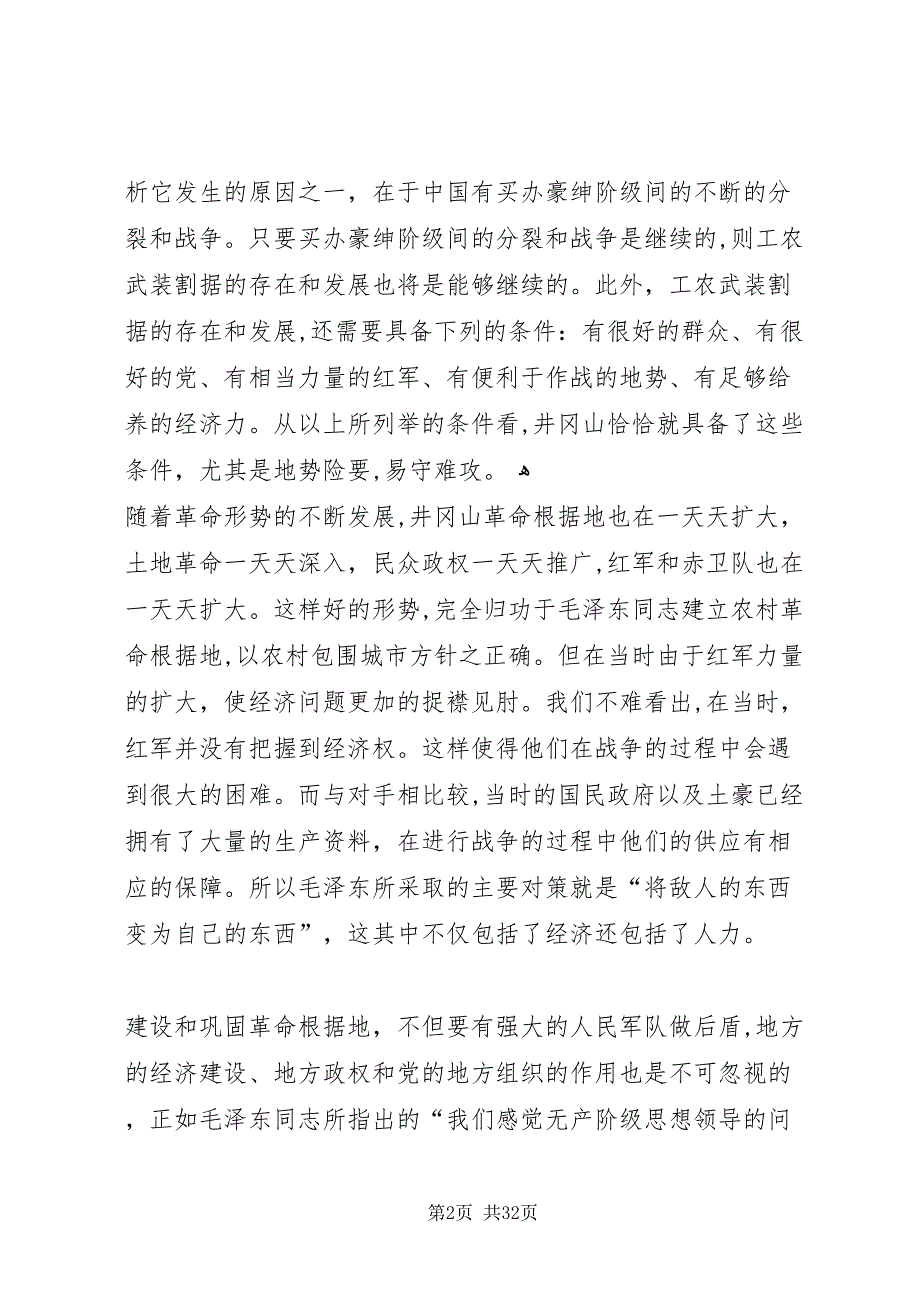 析它发生的原因之一，在于中国有买办豪绅阶级间的不断的分
裂和战争。只要买办豪绅阶级间的分裂和战争是继续的,则工农
武装割据的存在和发展也将是能够继续的。此外，工农武装割
据的存在和发展,还需要具备下列的条件：有很好的群众、有很
好的党、有相当力量的红军、有便利于作战的地势、有足够给
养的经济力。从以上所列举的条件看,井冈山恰恰就具备了这些
条件，尤其是地势险要,易守难攻。 ﻫ
随着革命形势的不断发展,井冈山革命根据地也在一天天扩大，
土地革命一天天深入，民众政权一天天推广,红军和赤卫队也在
一天天扩大。这样好的形势,完全归功于毛泽东同志建立农村革
命根据地,以农村包围城市方针之正确。但在当时由于红军力量
的扩大，使经济问题更加的捉襟见肘。我们不难看出,在当时，
红军并没有把握到经济权。这样使得他们在战争的过程中会遇
到很大的困难。而与对手相比较,当时的国民政府以及土豪已经
拥有了大量的生产资料，在进行战争的过程中他们的供应有相
应的保障。所以毛泽东所采取的主要对策就是“将敌人的东西
变为自己的东西”，这其中不仅包括了经济还包括了人力。
建设和巩固革命根据地，不但要有强大的人民军队做后盾,地方
的经济建设、地方政权和党的地方组织的作用也是不可忽视的
，正如毛泽东同志所指出的“我们感觉无产阶级思想领导的问
第2页 共32页